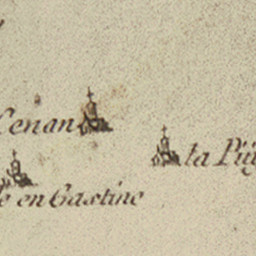 Cenan
la Puy
en Gastine